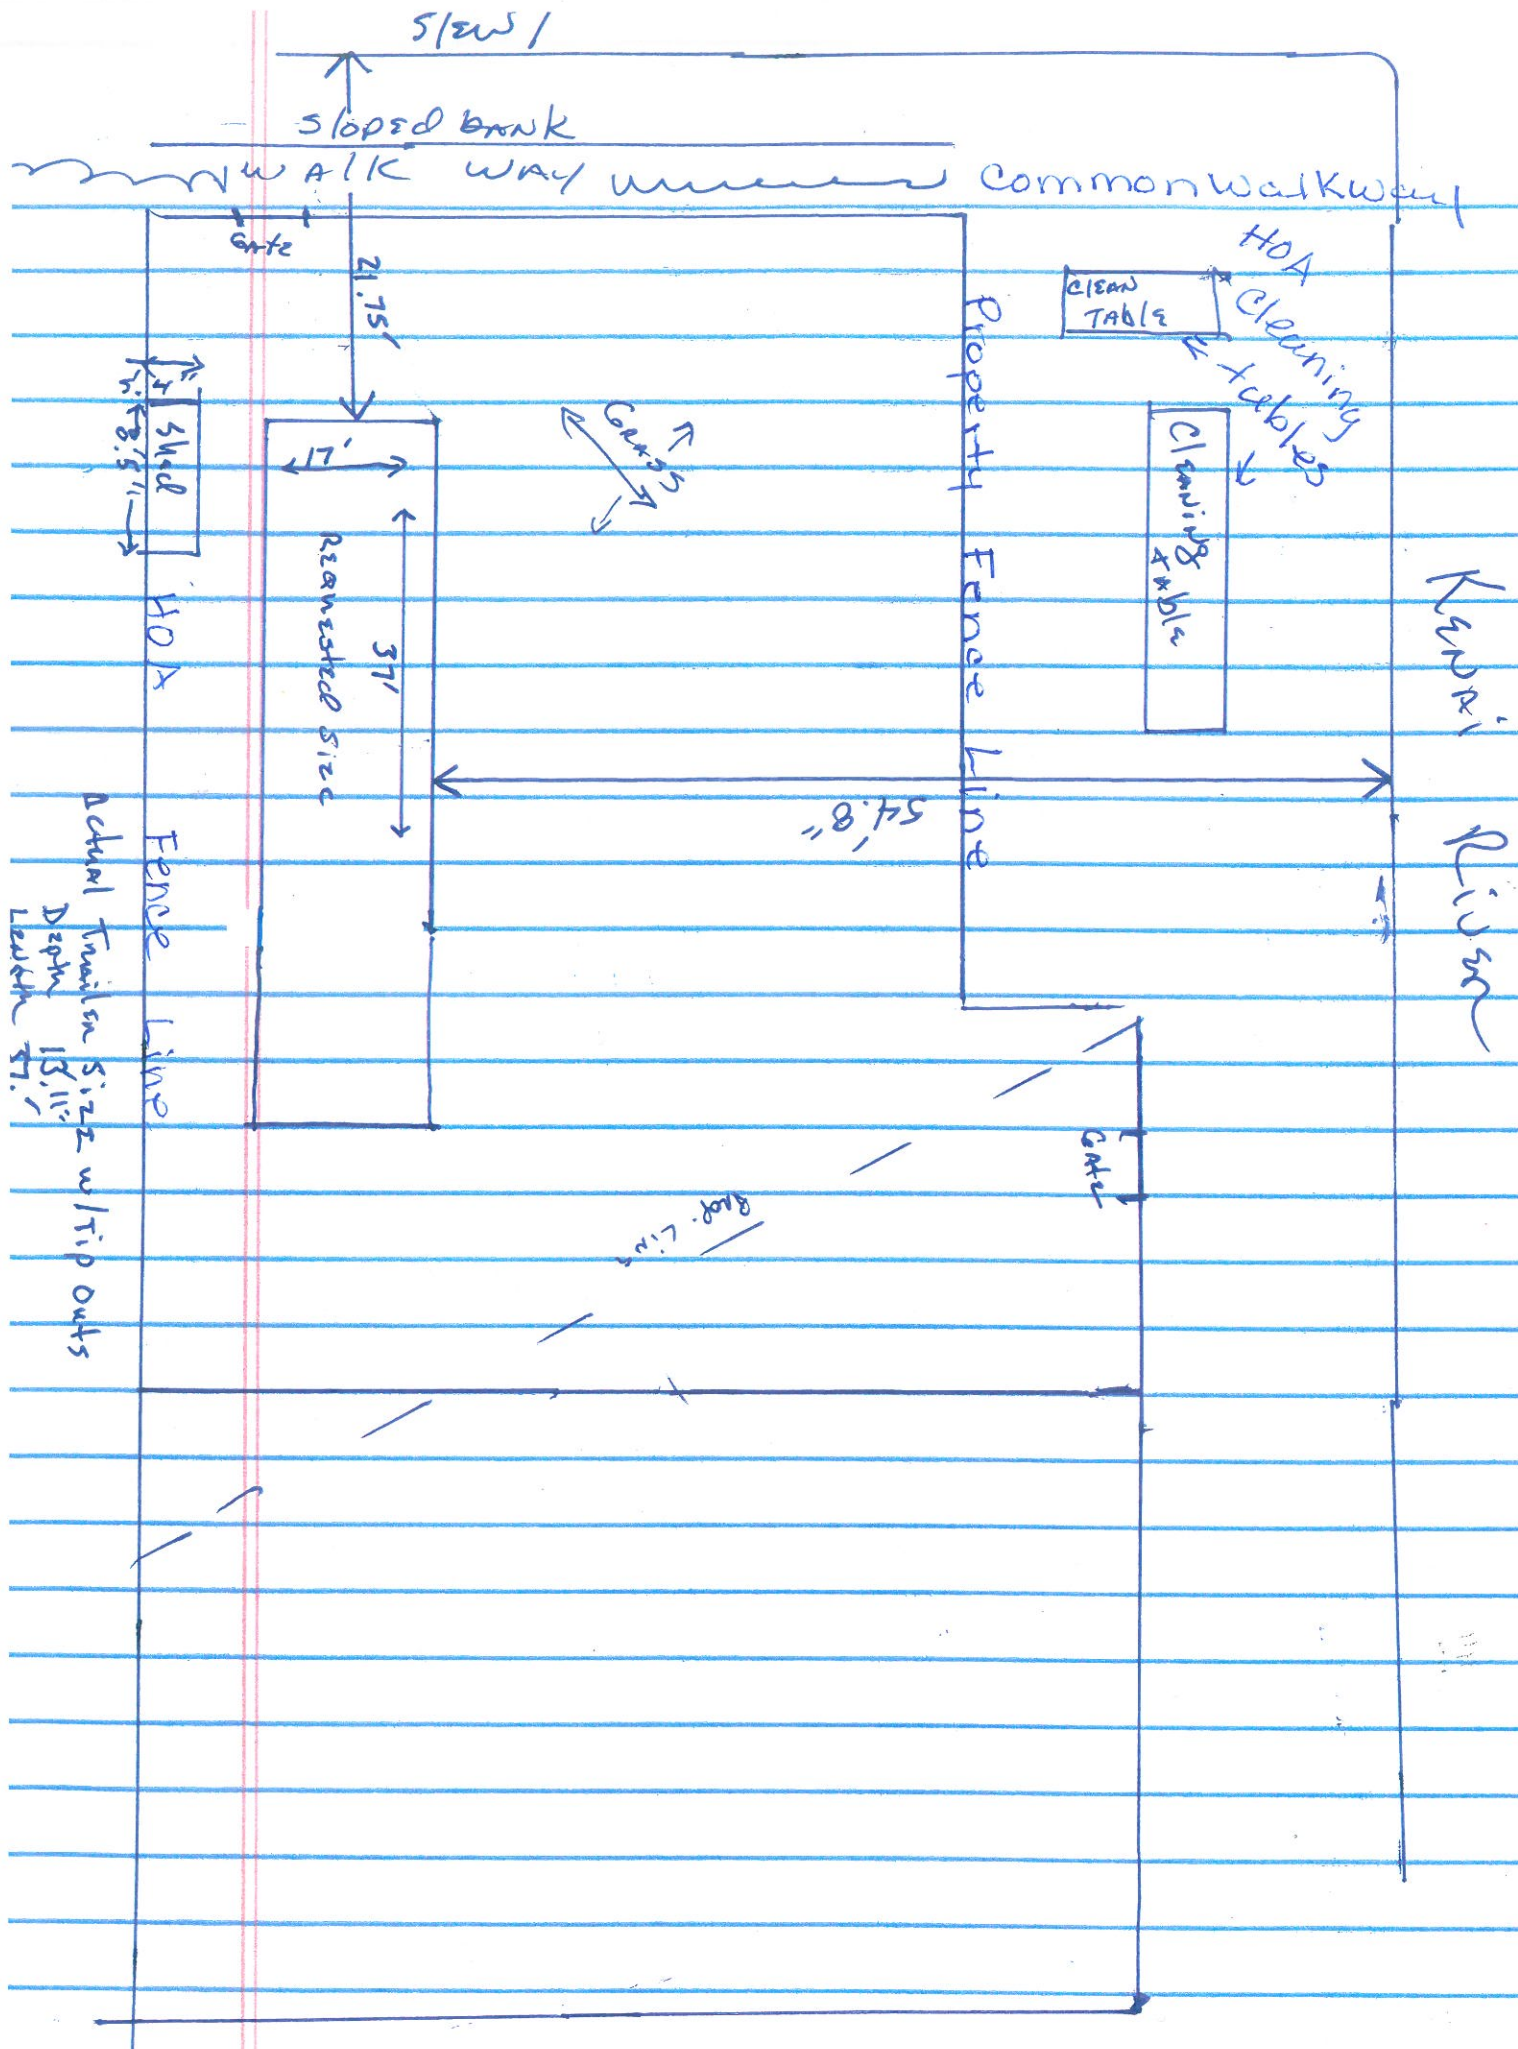 Slew /
Sloped bank
Walk Way
Common Walkway
Gate
21.75'
HOA
Cleaning
tables
Clean
Table
Cleaning
table
Property Fence Line
Kenai River
4"
8.5"
Shed
17'
37'
Requested Size
Grass
54'.8"
HOA Fence Line
Actual Trailer Size w/Tip Outs
Depth 13'.11"
Length 37.'
Gate
Prop. Line